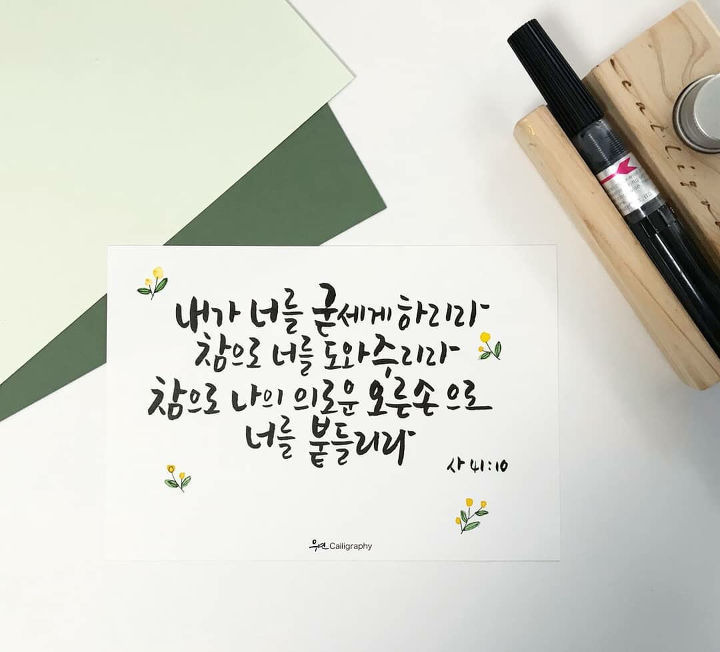 내가 너를 굳세게 하리라
참으로 너를 도와주리라
참으로 나의 의로운 오른손으로
너를 붙들리라
사 41:10
우연 Calligraphy
calligra